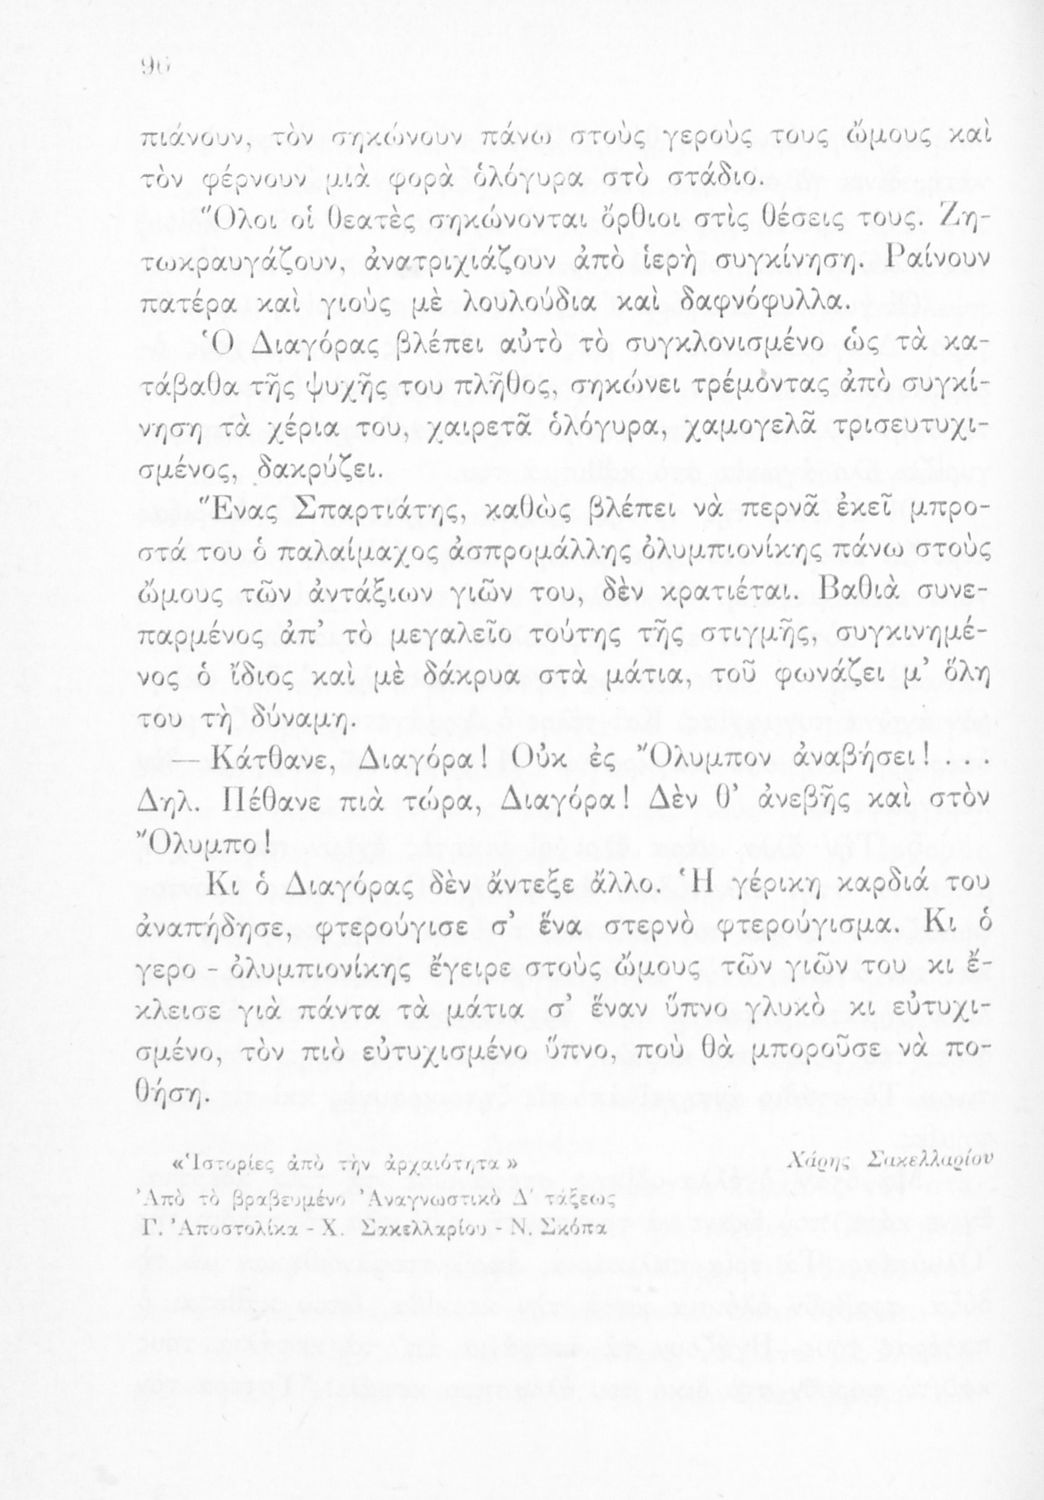 96
πιάνουν, τὸν σηκώνουν πάνω στοὺς γεροὺς τους ὤμους καὶ
τὸν φέρνουν μιὰ φορὰ ὁλόγυρα στὸ στάδιο.
Ὅλοι οἱ θεατὲς σηκώνονται ὄρθιοι στὶς θέσεις τους. Ζη-
τωκραυγάζουν, ἀνατριχιάζουν ἀπὸ ἱερὴ συγκίνηση. Ραίνουν
πατέρα καὶ γιοὺς μὲ λουλούδια καὶ δαφνόφυλλα.
Ὁ Διαγόρας βλέπει αὐτὸ τὸ συγκλονισμένο ὡς τὰ κα-
τάβαθα τῆς ψυχῆς του πλῆθος, σηκώνει τρέμοντας ἀπὸ συγκί-
νηση τὰ χέρια του, χαιρετᾶ ὁλόγυρα, χαμογελᾶ τρισευτυχι-
σμένος, δακρύζει.
Ἕνας Σπαρτιάτης, καθὼς βλέπει νὰ περνᾶ ἐκεῖ μπρο-
στά του ὁ παλαίμαχος ἀσπρομάλλης ὀλυμπιονίκης πάνω στοὺς
ὤμους τῶν ἀντάξιων γιῶν του, δὲν κρατιέται. Βαθιὰ συνε-
παρμένος ἀπ’ τὸ μεγαλεῖο τούτης τῆς στιγμῆς, συγκινημέ-
νος ὁ ἴδιος καὶ μὲ δάκρυα στὰ μάτια, τοῦ φωνάζει μ’ ὅλη
του τὴ δύναμη.
— Κάτθανε, Διαγόρα! Οὐκ ἐς Ὄλυμπον ἀναβήσει! . . .
Δηλ. Πέθανε πιὰ τώρα, Διαγόρα! Δὲν θ’ ἀνεβῆς καὶ στὸν
Ὄλυμπο!
Κι ὁ Διαγόρας δὲν ἄντεξε ἄλλο. Ἡ γέρικη καρδιά του
ἀναπήδησε, φτερούγισε σ’ ἕνα στερνὸ φτερούγισμα. Κι ὁ
γερο - ὀλυμπιονίκης ἔγειρε στοὺς ὤμους τῶν γιῶν του κι ἔ-
κλεισε γιὰ πάντα τὰ μάτια σ’ ἕναν ὕπνο γλυκὸ κι εὐτυχι-
σμένο, τὸν πιὸ εὐτυχισμένο ὕπνο, ποὺ θὰ μποροῦσε νὰ πο-
θήση.
«Ἱστορίες ἀπὸ τὴν ἀρχαιότητα» Χάρης Σακελλαρίου
Ἀπὸ τὸ βραβευμένο Ἀναγνωστικὸ Δ΄ τάξεως
Γ. Ἀποστολίκα - Χ. Σακελλαρίου - Ν. Σκόπα